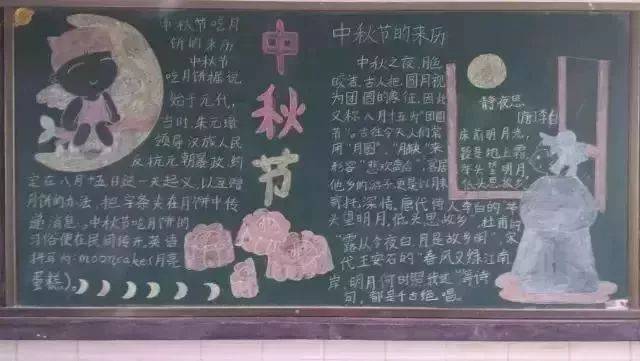 中秋节吃月
饼的来历
中秋节
吃月饼据说
始于元代,
当时,朱元璋
领导汉族人民
反抗元朝暴政,约
定在八月十五日这一天起义,以互赠
月饼的办法,把字条夹在月饼中传
递消息。中秋节吃月饼的
习俗便在民间传开,英语
拼写为mooncake(月亮
蛋糕)。
中
秋
节
中秋节的来历
中秋之夜,月色
皎洁,古人把圆月视
为团圆的象征,因此
又称八月十五为"团圆
节"。古往今来,人们常
用"月圆"、"月缺"来
形容"悲欢离合",客居
他乡的游子,更是以月来
寄托深情。唐代诗人李白的"举
头望明月,低头思故乡",杜甫的
"露从今夜白,月是故乡明",宋
代王安石的"春风又绿江南
岸,明月何时照我还"等诗
句,都是千古绝唱。
静夜思
[唐]李白
床前明月光,
疑是地上霜,
举头望明月,
低头思故乡。